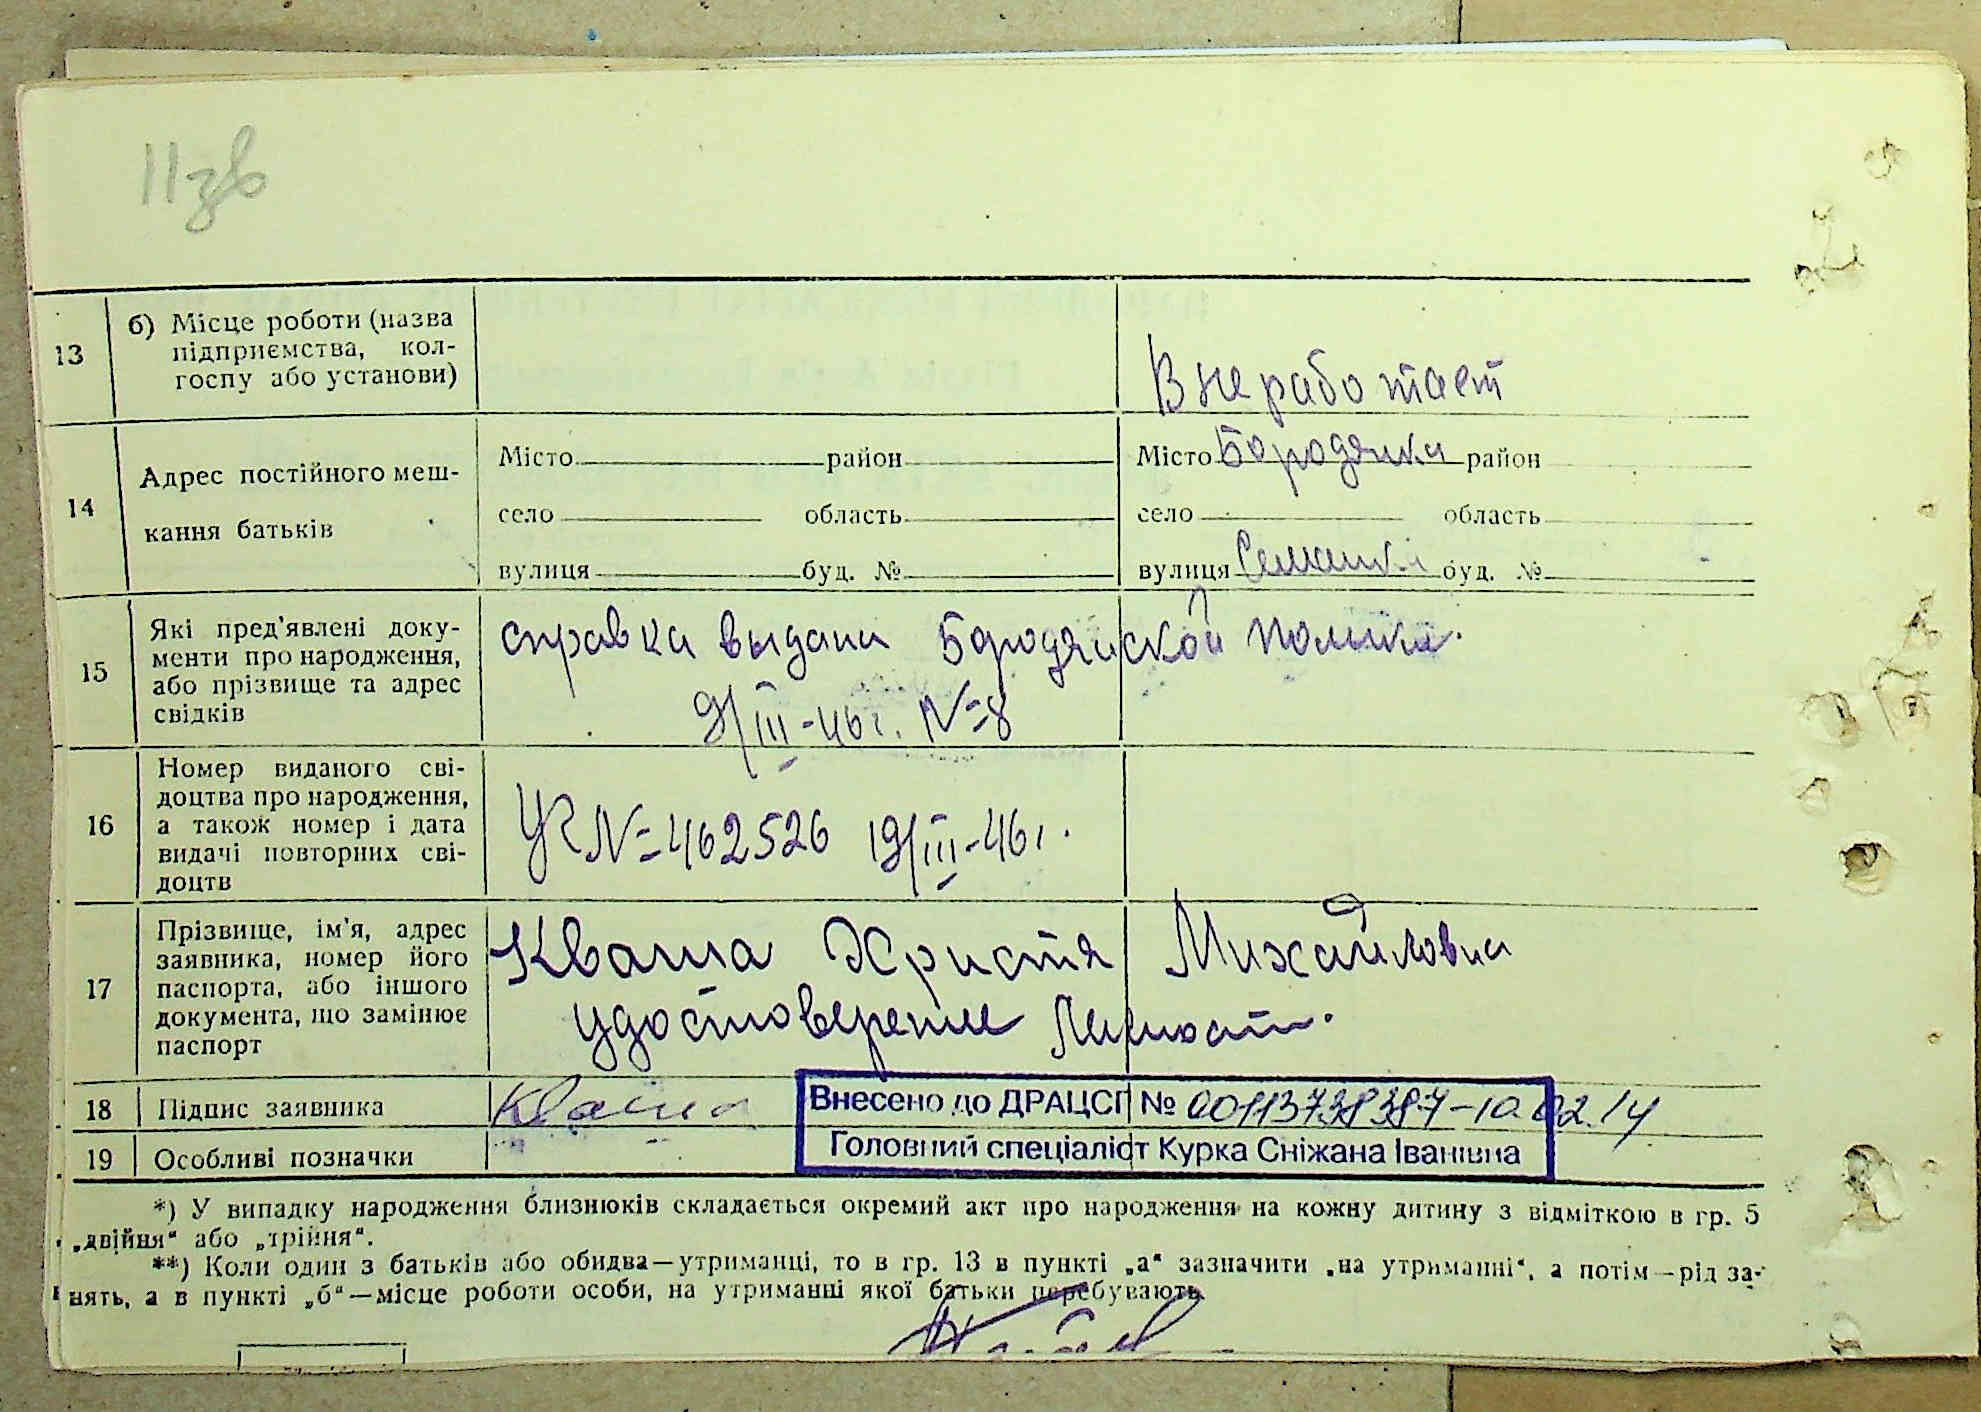 11зв
13 б) Місце роботи (назва
підприємства, кол-
госпу або установи)
не работает
14 Адрес постійного меш-
кання батьків
Місто район Місто Бородянка район
село область село область
вулиця буд. № вулиця Семашка буд. №
15 Які пред'явлені доку-
менти про народження,
або прізвище та адрес
свідків
справка выдана Бородянской поликл.
9/III-46 г. №8
16 Номер виданого сві-
доцтва про народження,
а також номер і дата
видачі повторних сві-
доцтв
№ 462526 19/III-46 г.
17 Прізвище, ім'я, адрес
заявника, номер його
паспорта, або іншого
документа, що замінює
паспорт
Кваша Христя Михайловна
удостоверение личност.
18 Підпис заявника Кваша
Внесено до ДРАЦСГ № 00113738387-10.02.14
19 Особливі позначки
Головний спеціаліст Курка Сніжана Іванівна
*) У випадку народження близнюків складається окремий акт про народження на кожну дитину з відміткою в гр. 5
„двійня“ або „трійня“.
**) Коли один з батьків або обидва—утриманці, то в гр. 13 в пункті „а“ зазначити „на утриманні“, а потім—рід за-
нять, а в пункті „б“—місце роботи особи, на утриманні якої батьки перебувають.